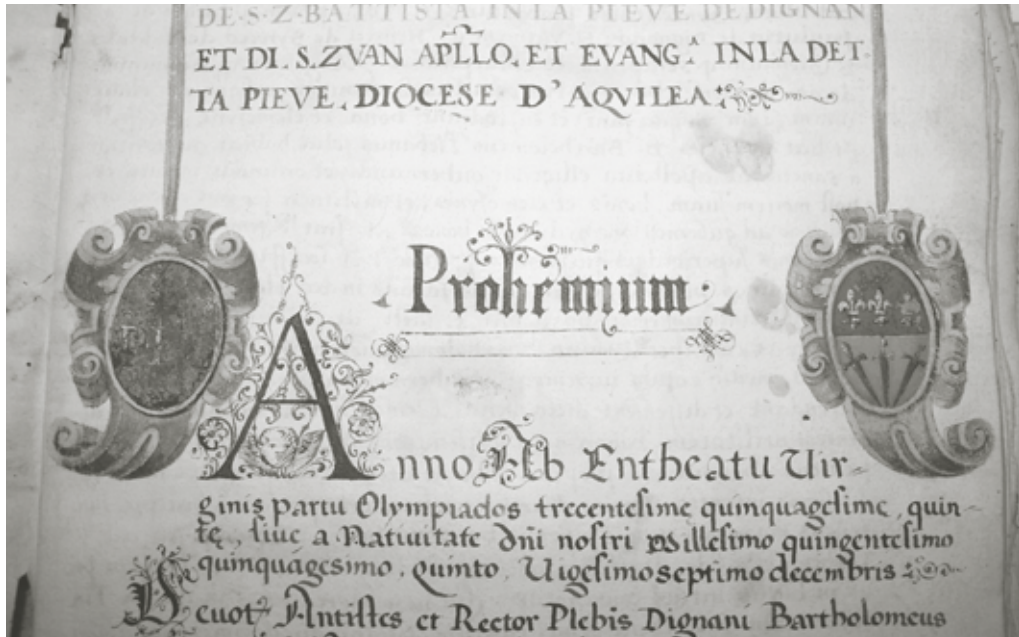 DE·S·Z·BATTISTA IN LA PIEVE DE DIGNAN
ET DI.S.ZVAN APLLO, ET EVANG.ᵃ IN LA DET-
TA PIEVE, DIOCESE D'AQVILEA:
Prohemium
Anno Ab Entheatu Vir-
ginis partu Olympiados trecentesimę quinquagesimę, quin-
tę, siue a Natiuitate dñi nostri Millesimo quingentesimo
quinquagesimo, quinto, Uigesimoseptimo decembris
Deuotꝰ Antistes et Rector Plebis Dignani Bartholomeus